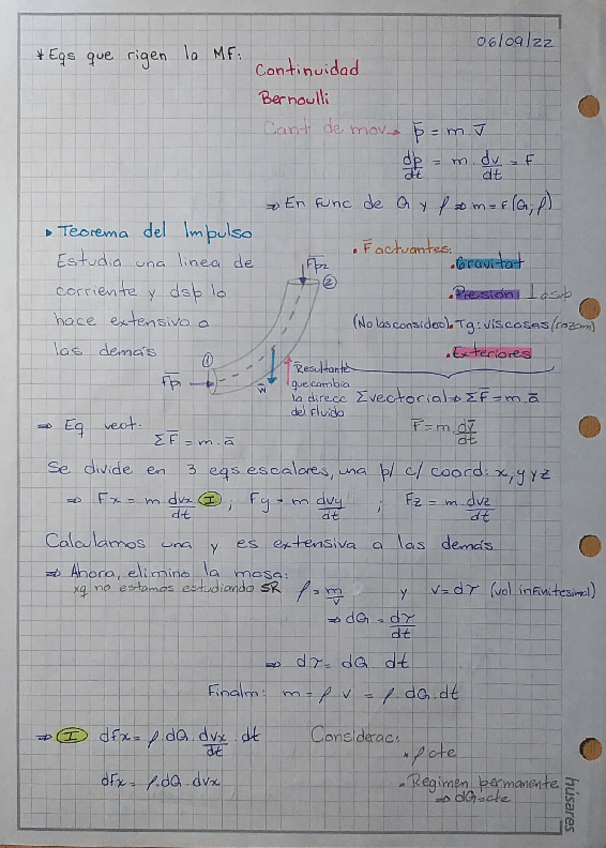 06/09/22
* Eqs que rigen la MF:
Continuidad
Bernoulli
Cant de mov → p̄ = m.v̄
dp/dt = m.dv/dt = F
⇒ En func de Q y ρ ⇒ m=F(Q;ρ)
▸ Teorema del Impulso
Estudia una linea de
corriente y dsp lo
hace extensivo a
las demás
Fp2
②
①
Fp1
W̄
Resultante
que cambia
la direcc
del fluido
• F̄actuantes:
• Gravitat
• Presión ⊥ a sup
(No las considero) • Tg: viscosas (rozam)
• Exteriores
Σvectorial ⇒ ΣF̄ = m.ā
F̄ = m.dv̄/dt
⇒ Eq vect:
ΣF̄ = m.ā
Se divide en 3 eqs escalares, una p/ c/ coord: x, y y z
⇒ Fx = m dvx/dt Ⓘ ; Fy = m.dvy/dt ; Fz = m.dvz/dt
Calculamos una y es extensiva a las demás
⇒ Ahora, elimino la masa:
xq no estamos estudiando SR
ρ = m/v y v = dτ (vol infinitesimal)
⇒ dQ = dτ/dt
⇒ dτ = dQ dt
Finalm: m = ρ v = ρ.dQ.dt
⇒ Ⓘ dFx = ρ.dQ.dvx/dt.dt
Considerac:
• ρ cte
dFx = ρ.dQ.dvx
• Régimen permanente
⇒ dQ=cte
húsares